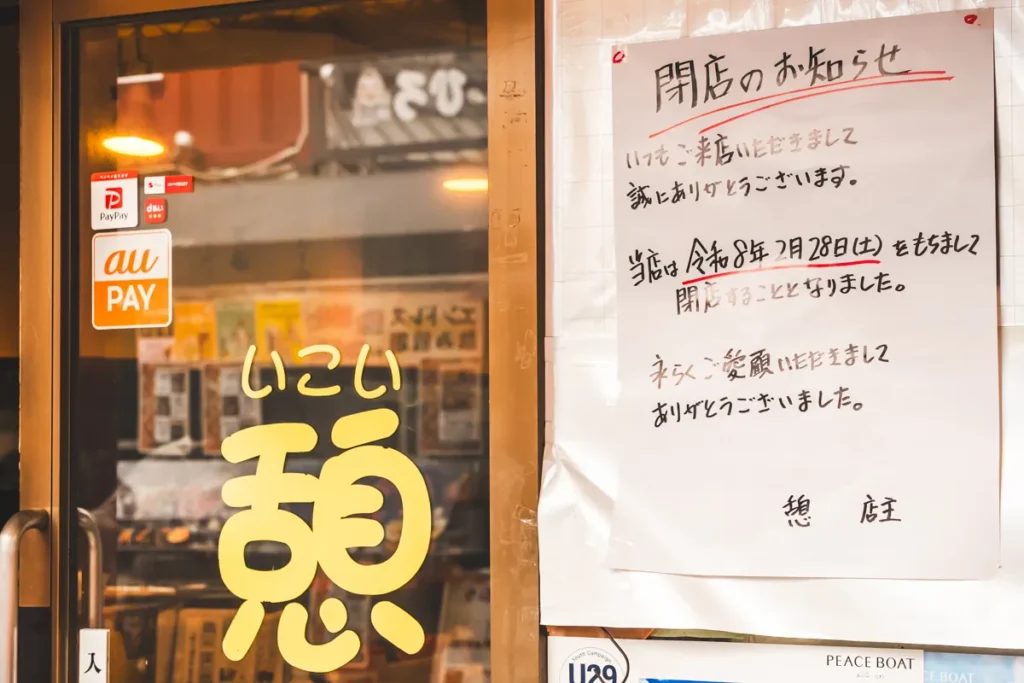 PayPay
au
PAY
いこい
憩
入
閉店のお知らせ
いつもご来店いただきまして
誠にありがとうございます。
当店は令和8年2月28日(土)をもちまして
閉店することとなりました。
永らくご愛顧いただきまして
ありがとうございました。
憩 店主
U29
PEACE BOAT
PEACE BOAT